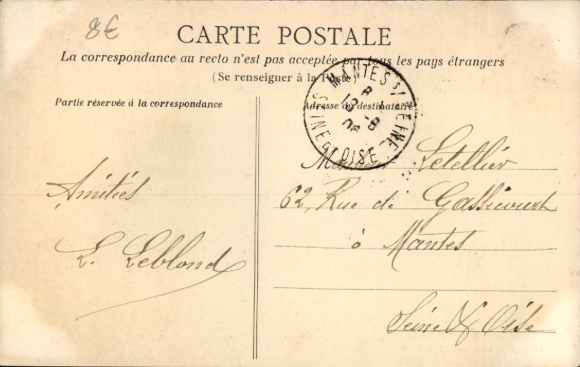 8€
CARTE POSTALE
La correspondance au recto n'est pas acceptée par tous les pays étrangers
(Se renseigner à la Poste)
Partie réservée à la correspondance
Adresse du destinataire
MANTES S/ SEINE
SEINE & OISE
Amitiés
L. Leblond
Letellier
62, Rue de Gassicourt
à
Mantes
Seine & Oise